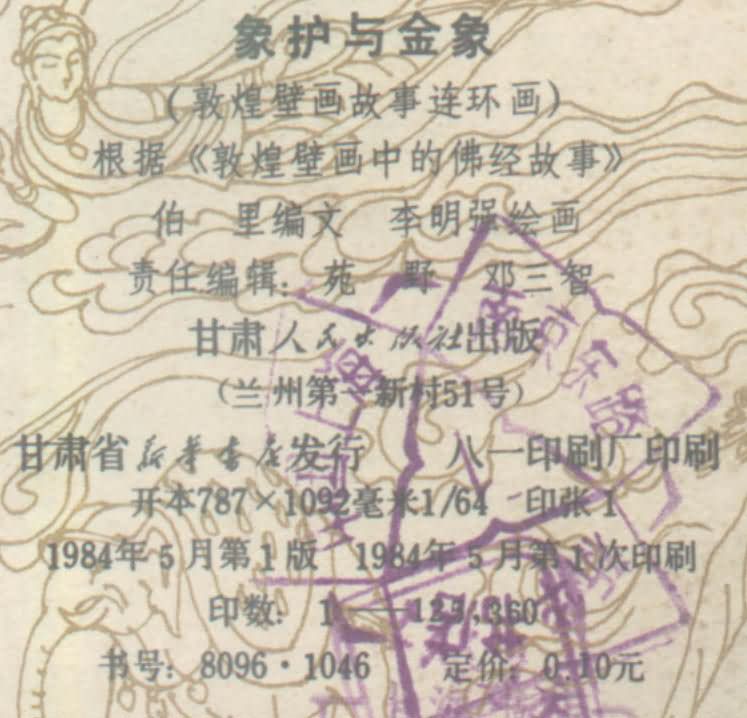 象护与金象
(敦煌壁画故事连环画)
根据《敦煌壁画中的佛经故事》
伯 里编文 李明强绘画
责任编辑：苑 野 邓三智
甘肃人民出版社出版
(兰州第一新村51号)
甘肃省新华书店发行 八一印刷厂印刷
开本787×1092毫米1/64 印张1
1984年5月第1版 1984年5月第1次印刷
印数：1——125,360
书号：8096·1046 定价：0.10元